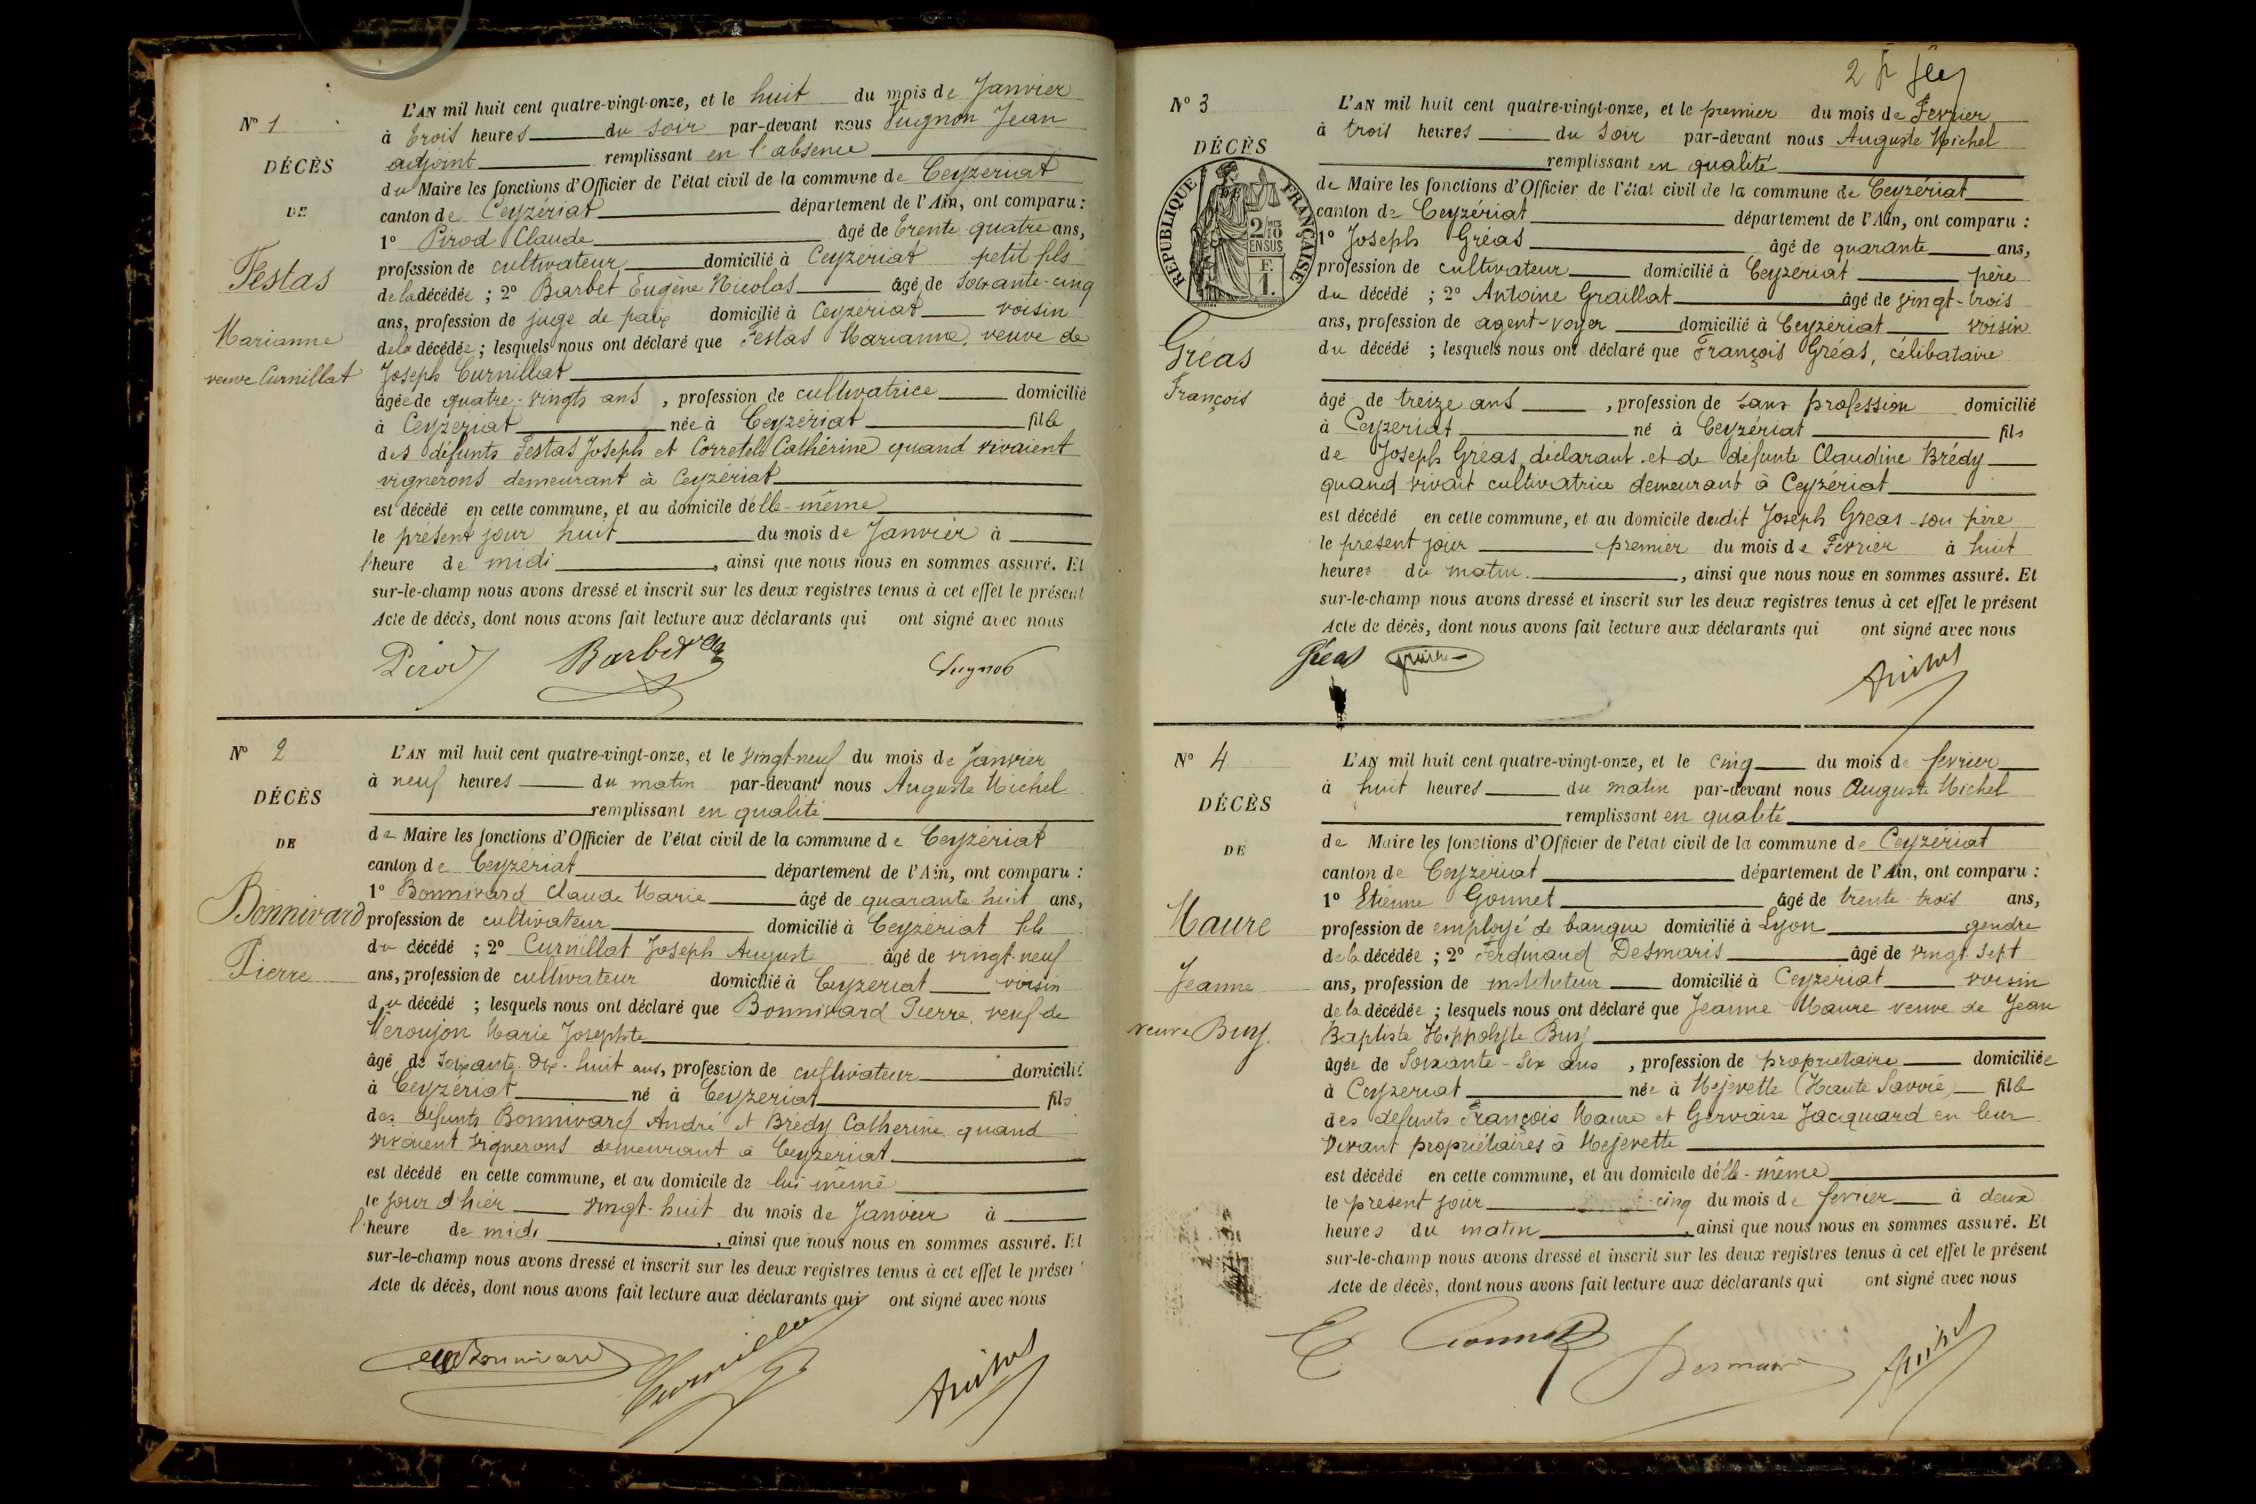 N° 1
DÉCÈS
DE
Festas
Marianne
veuve Curnillat
L'AN mil huit cent quatre-vingt-onze, et le huit du mois de Janvier
à trois heures du soir par-devant nous Vugnon Jean
adjoint remplissant en l'absence
du Maire les fonctions d'Officier de l'état civil de la commune de Ceyzériat
canton de Ceyzériat département de l'Ain, ont comparu :
1° Pirod Claude âgé de trente quatre ans,
profession de cultivateur domicilié à Ceyzériat petit fils
de la décédée ; 2° Barbet Eugène Nicolas âgé de soixante-cinq
ans, profession de juge de paix domicilié à Ceyzériat voisin
de la décédée ; lesquels nous ont déclaré que Festas Marianne, veuve de
Joseph Curnillat
âgée de quatre-vingts ans , profession de cultivatrice domicilié
à Ceyzériat née à Ceyzériat fille
des défunts Festas Joseph et Corretell Cathérine quand vivaient
vignerons demeurant à Ceyzériat
est décédé en cette commune, et au domicile d'elle-même
le présent jour huit du mois de Janvier à
l'heure de midi , ainsi que nous nous en sommes assuré. Et
sur-le-champ nous avons dressé et inscrit sur les deux registres tenus à cet effet le présent
Acte de décès, dont nous avons fait lecture aux déclarants qui ont signé avec nous
Pirod Barbet Vugnon
N° 2
DÉCÈS
DE
Bonnivard
Pierre
L'AN mil huit cent quatre-vingt-onze, et le vingt-neuf du mois de Janvier
à neuf heures du matin par-devant nous Auguste Michel
remplissant en qualité
de Maire les fonctions d'Officier de l'état civil de la commune de Ceyzériat
canton de Ceyzeriat département de l'Ain, ont comparu :
1° Bonnivard Claude Marie âgé de quarante huit ans,
profession de cultivateur domicilié à Ceyzériat fils
du décédé ; 2° Curnillat Joseph August âgé de vingt-neuf
ans, profession de cultivateur domicilié à Ceyzeriat voisin
du décédé ; lesquels nous ont déclaré que Bonnivard Pierre, veuf de
Marie Josephte
âgé de soixante-dix-huit ans, profession de cultivateur domicilié
à Ceyzériat né à Ceyzériat fils
des défunts Bonnivard André et Brédy Catherine quand
vivaient vignerons demeurant à Ceyzeriat
est décédé en cette commune, et au domicile de lui même
le jour d'hier vingt-huit du mois de Janvier à
l'heure de midi , ainsi que nous nous en sommes assuré. Et
sur-le-champ nous avons dressé et inscrit sur les deux registres tenus à cet effet le présen
Acte de décès, dont nous avons fait lecture aux déclarants qui ont signé avec nous
Bonnivard Curnillat
N° 3
DÉCÈS
DE
RÉPUBLIQUE FRANÇAISE
2/10 EN SUS
F. 1.
Gréas
François
L'AN mil huit cent quatre-vingt-onze, et le premier du mois de Fevrier
à trois heures du soir par-devant nous Auguste Michel
remplissant en qualité
de Maire les fonctions d'Officier de l'état civil de la commune de Ceyzériat
canton de Ceyzériat département de l'Ain, ont comparu :
1° Joseph Gréas âgé de quarante ans,
profession de cultivateur domicilié à Ceyzériat père
du décédé ; 2° Antoine Graillat âgé de vingt-trois
ans, profession de agent-voyer domicilié à Ceyzériat voisin
du décédé ; lesquels nous ont déclaré que François Gréas, célibataire
âgé de treize ans , profession de sans profession domicilié
à Ceyzériat né à Ceyzériat fils
de Joseph Gréas déclarant et de défunte Claudine Brédy
quand vivait cultivatrice demeurant à Ceyzériat
est décédé en cette commune, et au domicile dudit Joseph Gréas son père
le présent jour premier du mois de Fevrier à huit
heures du matin , ainsi que nous nous en sommes assuré. Et
sur-le-champ nous avons dressé et inscrit sur les deux registres tenus à cet effet le présent
Acte de décès, dont nous avons fait lecture aux déclarants qui ont signé avec nous
Gréas
N° 4
DÉCÈS
DE
Maure
Jeanne
veuve Buy.
L'AN mil huit cent quatre-vingt-onze, et le cinq du mois de fevrier
à huit heures du matin par-devant nous Auguste Michel
remplissant en qualité
de Maire les fonctions d'Officier de l'état civil de la commune de Ceyzériat
canton de Ceyzériat département de l'Ain, ont comparu :
1° Etienne Gonnet âgé de trente trois ans,
profession de employé de banque domicilié à Lyon gendre
de la décédée ; 2° Ferdinand Desmaris âgé de vingt sept
ans, profession de instituteur domicilié à Ceyzériat voisin
de la décédée ; lesquels nous ont déclaré que Jeanne Maure veuve de Jean
Baptiste Hippolyte Buy
âgée de soixante-six ans , profession de propriétaire domiciliée
à Ceyzeriat née à Mejevette (Haute Savoie) fille
des défunts François Maure et Gervaise Jacquard en leur
vivant propriétaires à Mejevette
est décédé en cette commune, et au domicile d'elle-même
le présent jour cinq du mois de fevrier à deux
heures du matin , ainsi que nous nous en sommes assuré. Et
sur-le-champ nous avons dressé et inscrit sur les deux registres tenus à cet effet le présent
Acte de décès, dont nous avons fait lecture aux déclarants qui ont signé avec nous
E Gonnet Desmaris